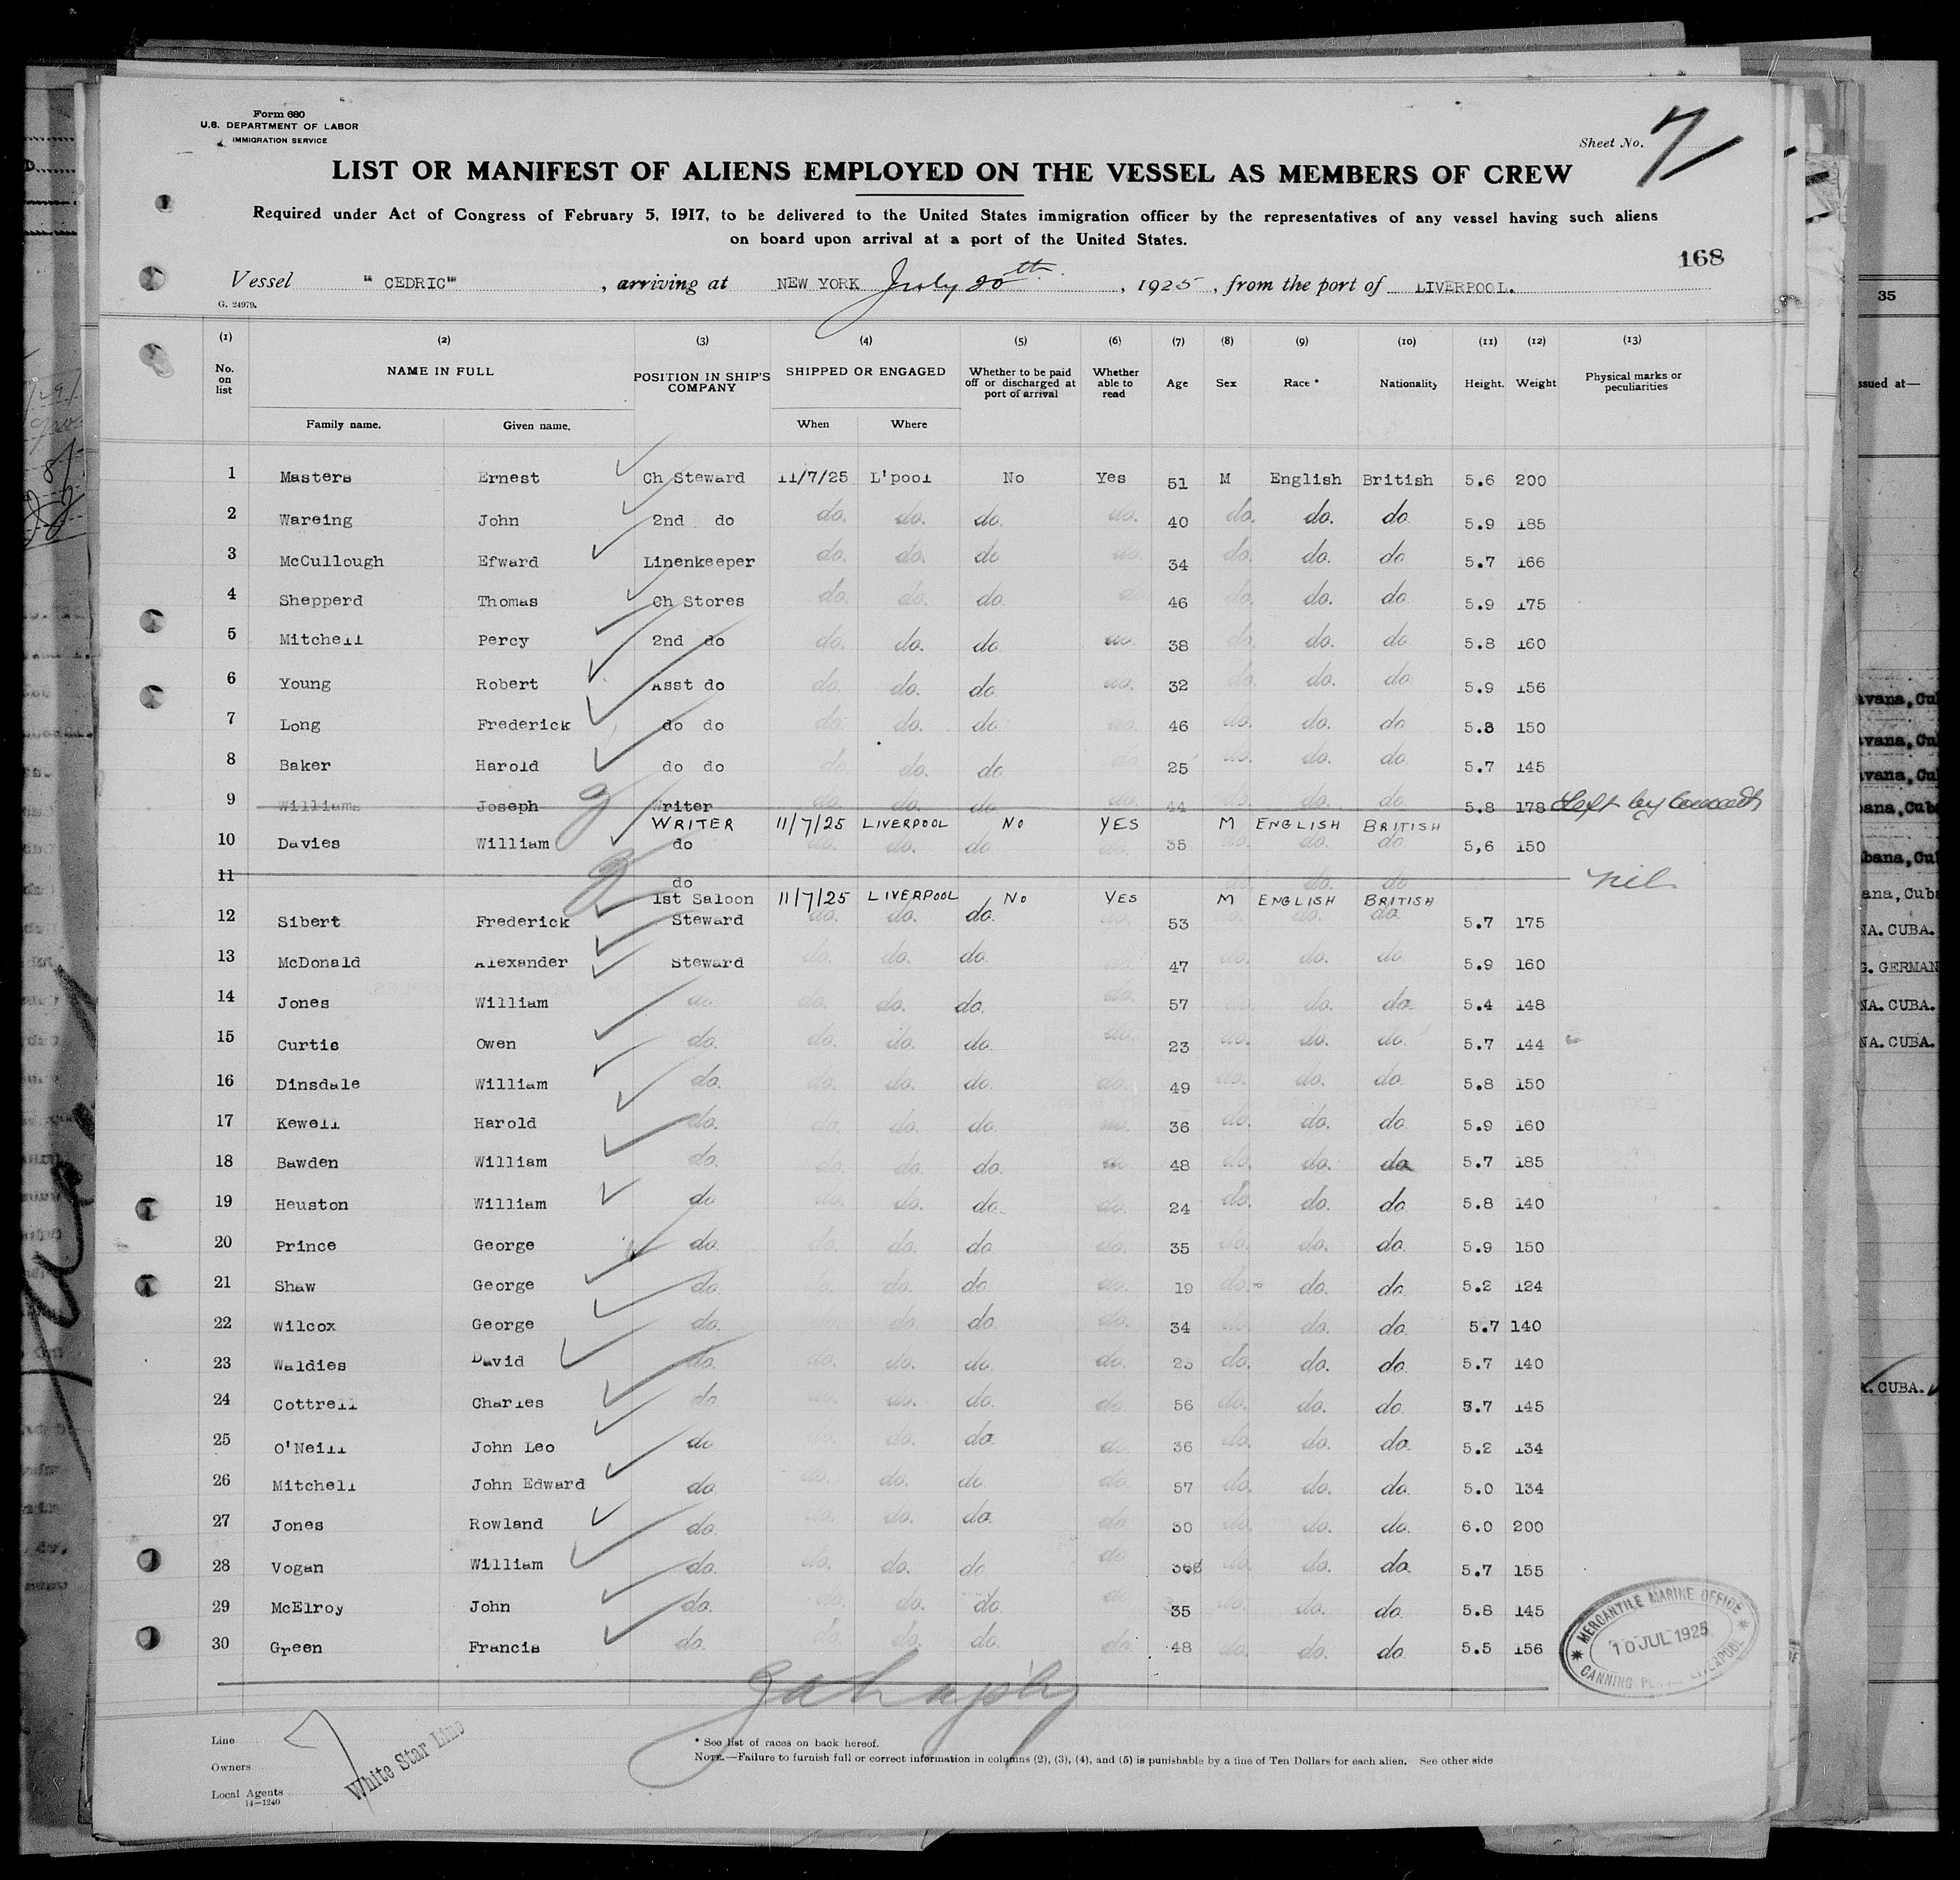 Form 680
U.S. DEPARTMENT OF LABOR
IMMIGRATION SERVICE
Sheet No. 7
LIST OR MANIFEST OF ALIENS EMPLOYED ON THE VESSEL AS MEMBERS OF CREW
Required under Act of Congress of February 5, 1917, to be delivered to the United States immigration officer by the representatives of any vessel having such aliens
on board upon arrival at a port of the United States.
168
Vessel "CEDRIC", arriving at NEW YORK July 20th, 1925, from the port of LIVERPOOL.
G. 24979.
(1) (2) (3) (4) (5) (6) (7) (8) (9) (10) (11) (12) (13)
No. on list NAME IN FULL POSITION IN SHIP'S COMPANY SHIPPED OR ENGAGED Whether to be paid off or discharged at port of arrival Whether able to read Age Sex Race* Nationality Height. Weight Physical marks or peculiarities
Family name. Given name. When Where
1 Masters Ernest Ch Steward 11/7/25 L'pool No Yes 51 M English British 5.6 200
2 Wareing John 2nd do do. do. do. do. 40 do. do. do 5.9 185
3 McCullough Efward Linenkeeper do. do. do do. 34 do. do. do 5.7 166
4 Shepperd Thomas Ch Stores do. do. do. do. 46 do. do. do 5.9 175
5 Mitchell Percy 2nd do do. do. do. do. 38 do. do. do 5.8 160
6 Young Robert Asst do do. do. do do. 32 do. do. do 5.9 156
7 Long Frederick do do do. do. do. do. 46 do. do. do 5.8 150
8 Baker Harold do do do do. do. do. 25 do. do. do. 5.7 145
9 Williams Joseph Writer do. do. do do. 44 do. do. do. 5.8 178 Left by
WRITER 11/7/25 LIVERPOOL No YES M ENGLISH BRITISH
10 Davies William do do. do. do do. 35 do. do. do 5,6 150
11 do do. do. do nil
1st Saloon 11/7/25 LIVERPOOL No YES M ENGLISH BRITISH
12 Sibert Frederick Steward do. do. do. do. 53 do. do. do. 5.7 175
13 McDonald Alexander Steward do. do. do. do. 47 do. do. do. 5.9 160
14 Jones William do. do. do. do. do. 57 do. do. do. 5.4 148
15 Curtis Owen do. do. do. do. do. 23 do. do. do. 5.7 144
16 Dinsdale William do. do. do. do. do. 49 do. do. do. 5.8 150
17 Kewell Harold do. do. do. do. do. 36 do. do. do. 5.9 160
18 Bawden William do. do. do. do. do 48 do. do. do 5.7 185
19 Heuston William do do. do. do. do. 24 do. do. do. 5.8 140
20 Prince George do. do. do. do do. 35 do. do. do. 5.9 150
21 Shaw George do. do. do. do do. 19 do. do. do. 5.2 124
22 Wilcox George do. do. do. do. do. 34 do. do. do. 5.7 140
23 Waldies David do. do. do. do. do. do. do. do. 5.7 140
24 Cottrell Charles do. do. do. do. do. 56 do. do. do. 5.7 145
25 O'Neill John Leo do do. do. do. do 36 do. do. do. 5.2 134
26 Mitchell John Edward do. do. do. do. do 57 do. do. do. 5.0 134
27 Jones Rowland do. do. do. do. do 30 do. do. do. 6.0 200
28 Vogan William do. do. do. do do do. do. do. 5.7 155
29 McElroy John do. do. do. do. do 35 do. do. do. 5.8 145
30 Green Francis do. do. do. do. do. 48 do. do. do. 5.5 156
MERCANTILE MARINE OFFICE
10 JUL 1925
CANNING LIVERPOOL
Line
Owners
Local Agents
14—1240
White Star Line
* See list of races on back hereof.
NOTE.—Failure to furnish full or correct information in columns (2), (3), (4), and (5) is punishable by a fine of Ten Dollars for each alien. See other side
35
ssued at—